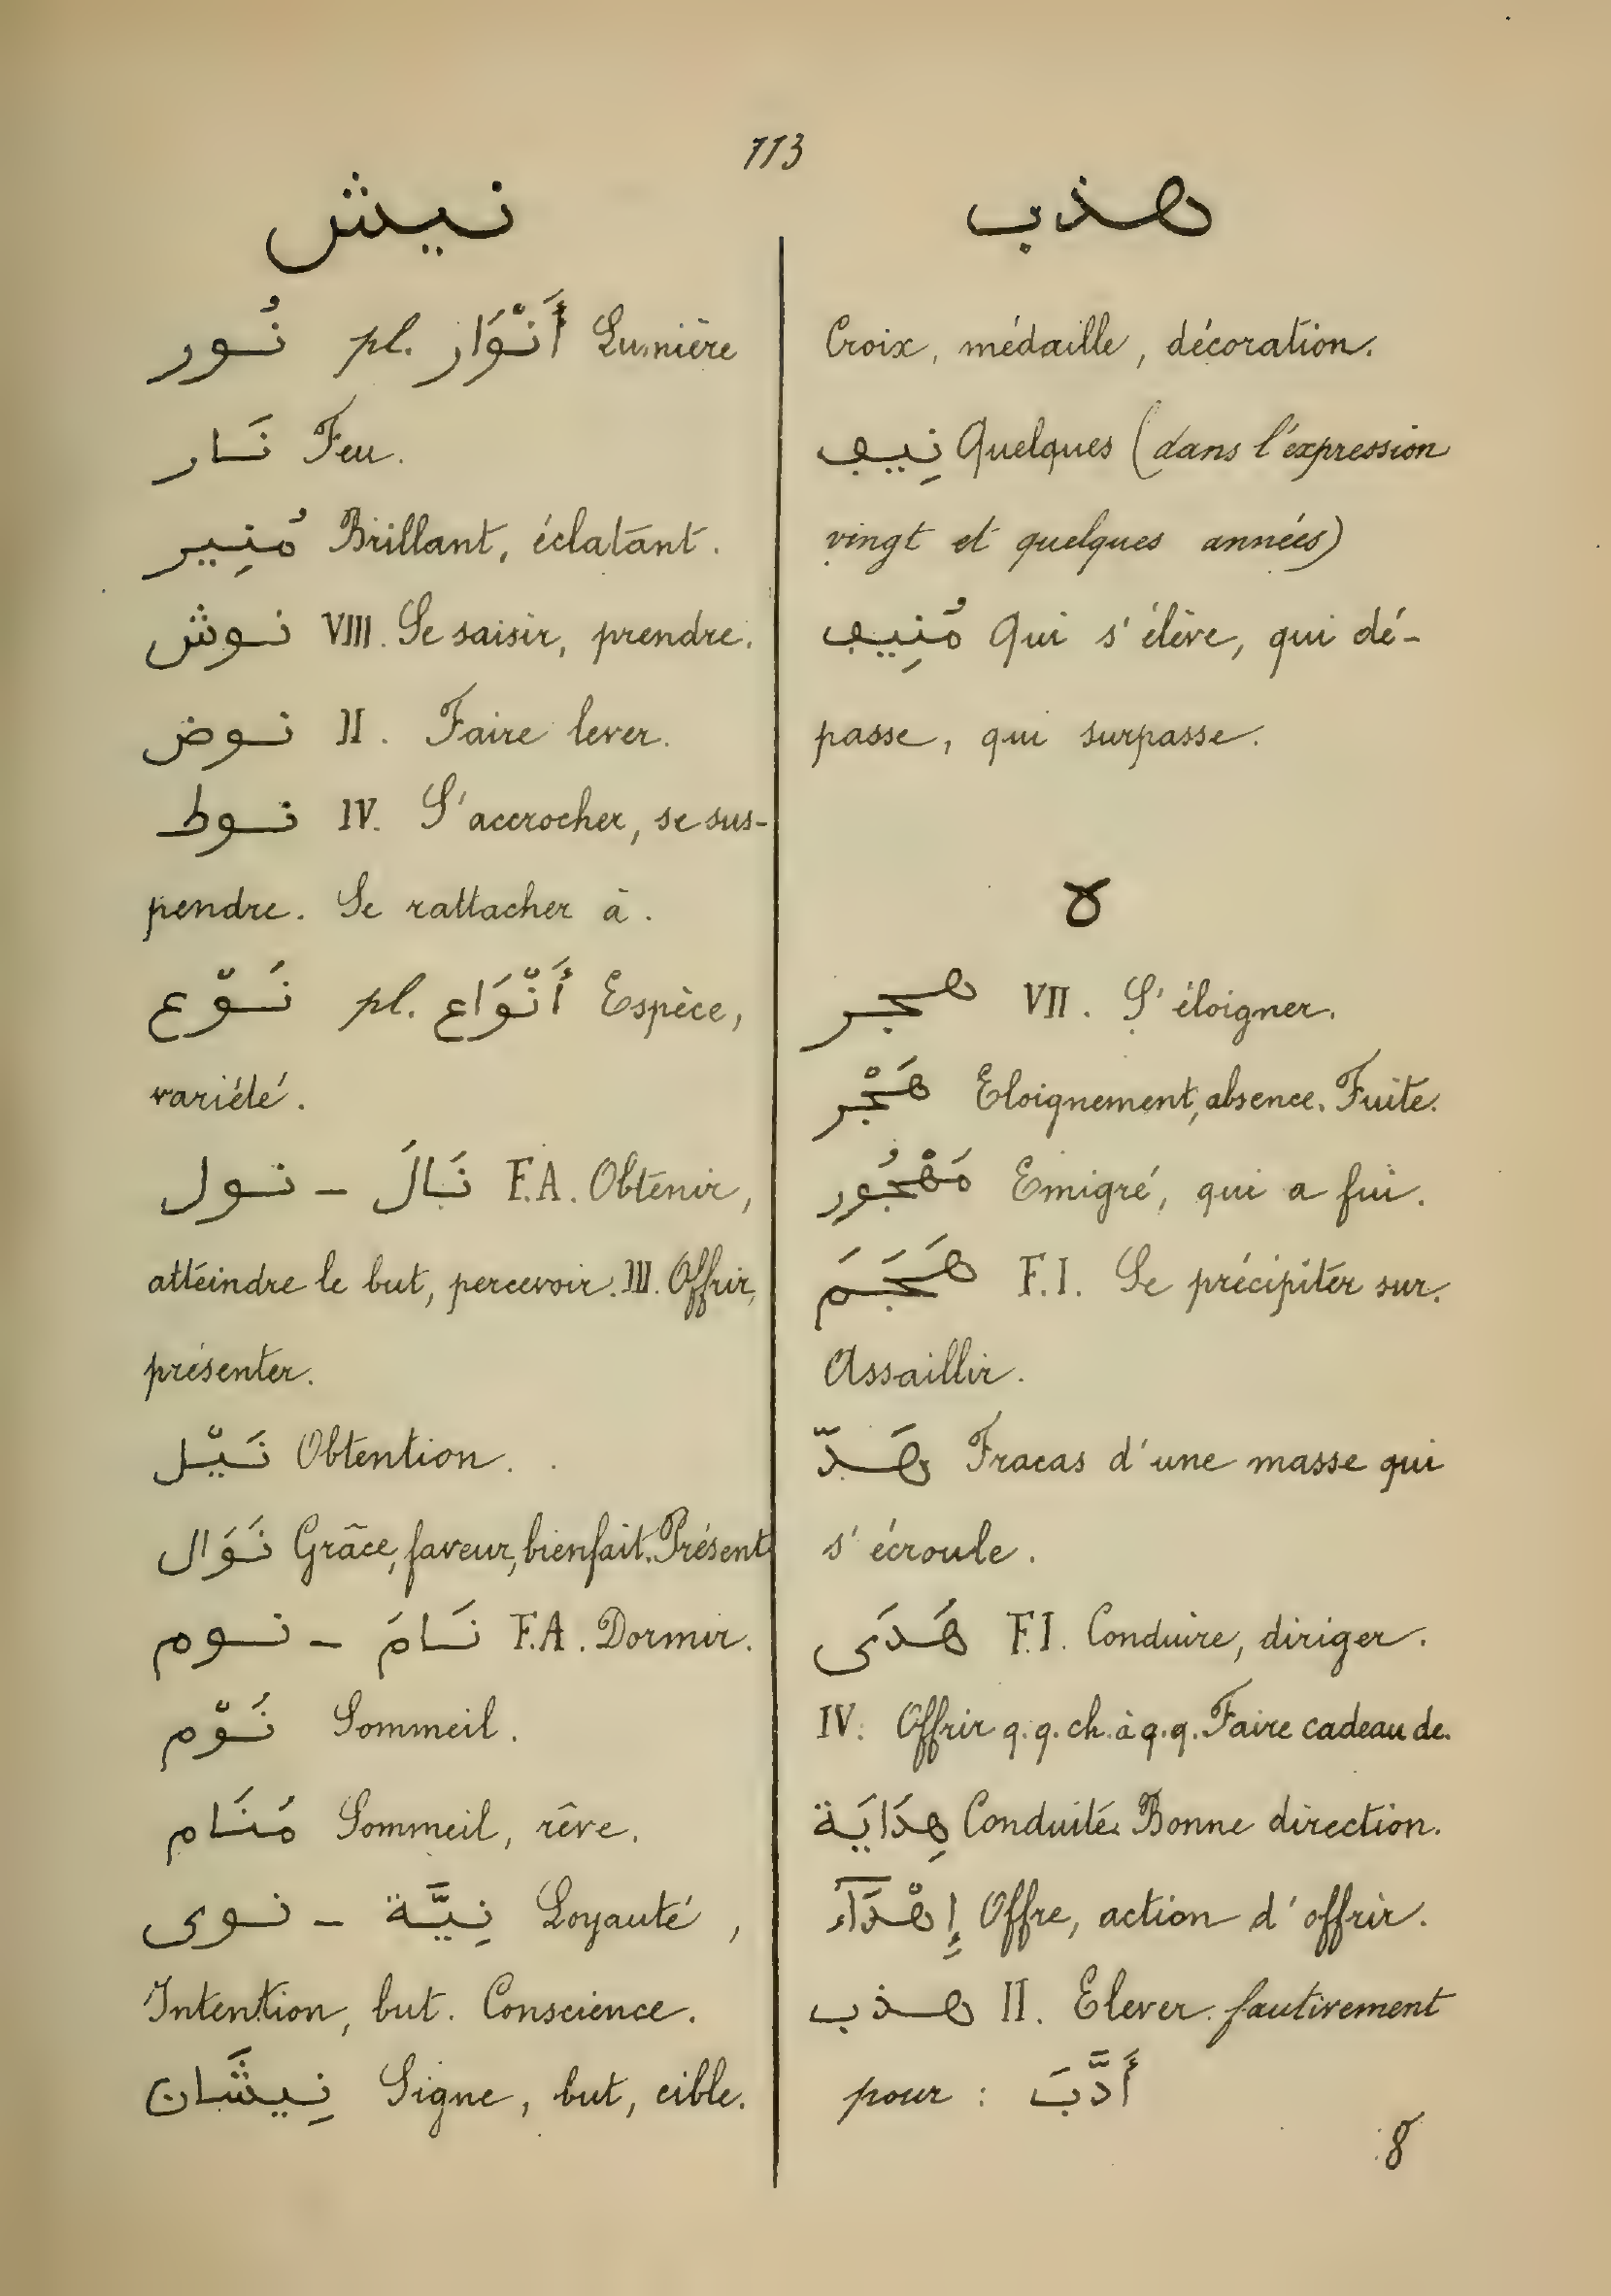 113
نيش
نُور pl. أَنْوَار Lumière
نَار Feu.
مُنِير Brillant, éclatant.
نوش VIII. Se saisir, prendre.
نوض II. Faire lever.
نوط IV. S'accrocher, se sus-
pendre. Se rattacher à.
نَوْع pl. أَنْوَاع Espèce,
variété.
نول – نَالَ F.A. Obtenir,
atteindre le but, percevoir. III. Offrir,
présenter.
نَيْل Obtention.
نَوَال Grâce, faveur, bienfait. Présent
نوم – نَامَ F.A. Dormir.
نَوْم Sommeil.
مَنَام Sommeil, rêve.
نوى – نِيَّة Loyauté,
Intention, but. Conscience.
نِيشَان Signe, but, cible.
هذب
Croix, médaille, décoration.
نِيڢ Quelques (dans l'expression
vingt et quelques années)
مُنِيڢ Qui s'élève, qui dé-
passe, qui surpasse.
ه
هجر VII. S'éloigner.
هَجْر Eloignement, absence. Fuite.
مَهْجُور Emigré, qui a fui.
هَجَمَ F.I. Se précipiter sur.
Assaillir.
هَدّ Fracas d'une masse qui
s'écroule.
هَدَى F.I. Conduire, diriger.
IV. Offrir q.q.ch. à q.q. Faire cadeau de.
هِدَايَة Conduite. Bonne direction.
إِهْدَآء Offre, action d'offrir.
هذب II. Elever. fautivement
pour : أَدَّبَ
8